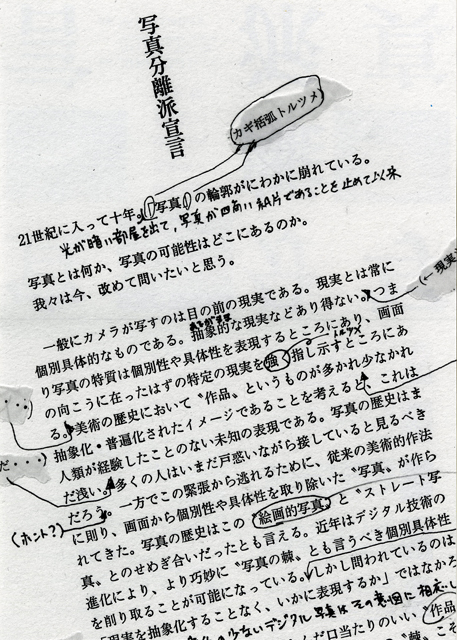 写真分離派宣言
カギ括弧トルツメ
21世紀に入って十年。「写真」の輪郭がにわかに崩れている。
光が暗い部屋を出て、写真が四角い紙片であることを止めて以来
写真とは何か、写真の可能性はどこにあるのか。
我々は今、改めて問いたいと思う。
(一現実
一般にカメラが写すのは目の前の現実である。現実とは常に
個別具体的なものである。抽象的な現実などあり得ない。つま
り写真の特質は個別性や具体性を表現するところにあり、画面
トルツメ
の向こうに在ったはずの特定の現実を強く指し示すところにあ
る。美術の歴史において〝作品〟というものが多かれ少なかれ
抽象化・普遍化されたイメージであることを考えると、これは
だ・・・)
人類が経験したことのない未知の表現である。写真の歴史はま
だ浅い。多くの人はいまだ戸惑いながら接していると見るべき
だろう。一方でこの緊張から逃れるために、従来の美術的作法
(ホント?)
に則り、画面から個別性や具体性を取り除いた〝写真〟が作ら
れてきた。写真の歴史はこの〝絵画的写真〟と〝ストレート写
真〟とのせめぎ合いだったとも言える。近年はデジタル技術の
進化により、より巧妙に〝写真の棘〟とも言うべき個別具体性
を削り取ることが可能になっている。しかし問われているのは
「現実を抽象化することなく、いかに表現するか」ではなかろ
少ないデジタル写真はその意図に相応し
口当たりのいい〝作品